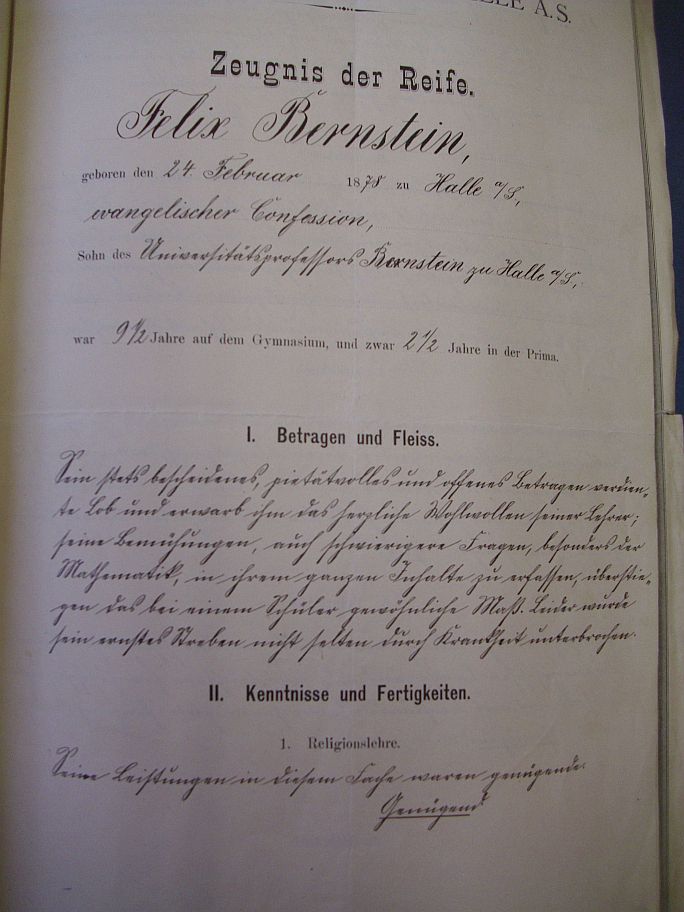 LLE A.S.
Zeugnis der Reife.
Felix Bernstein,
geboren den 24 Februar 1878 zu Halle a/S,
evangelischer Confession,
Sohn des Universitätsprofessors Bernstein zu Halle a/S,
war 9 1/2 Jahre auf dem Gymnasium, und zwar 2 1/2 Jahre in der Prima.
I. Betragen und Fleiss.
Sein stets bescheidenes, pietätvolles und offenes Betragen verdien-
te Lob und erwarb ihm das herzliche Wohlwollen seiner Lehrer;
seine Bemühungen, auch schwierigere Fragen, besonders der
Mathematik, in ihrem ganzen Inhalte zu erfassen, überstie-
gen das bei einem Schüler gewöhnliche Maß. Leider wurde
sein ernstes Streben nicht selten durch Krankheit unterbrochen.
II. Kenntnisse und Fertigkeiten.
1. Religionslehre.
Seine Leistungen in diesem Fache waren genügende.
Genügend